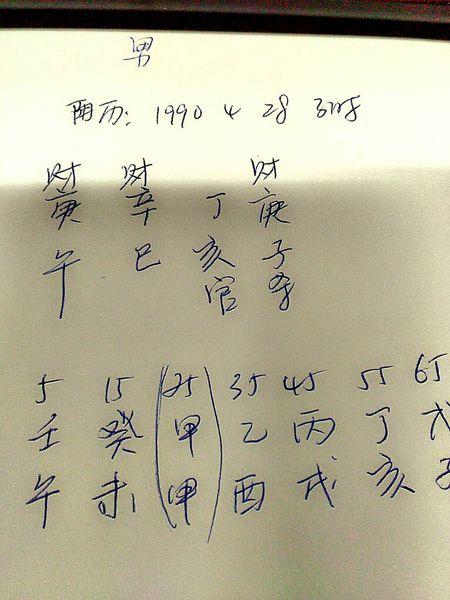 男
阴历: 1990 4 28 子时
财 财 财
庚 辛 丁 庚
午 巳 亥 子
官 杀
5 15 (25) 35 45 55 65
壬 癸 甲 乙 丙 丁 戊
午 未 甲 酉 戌 亥 子